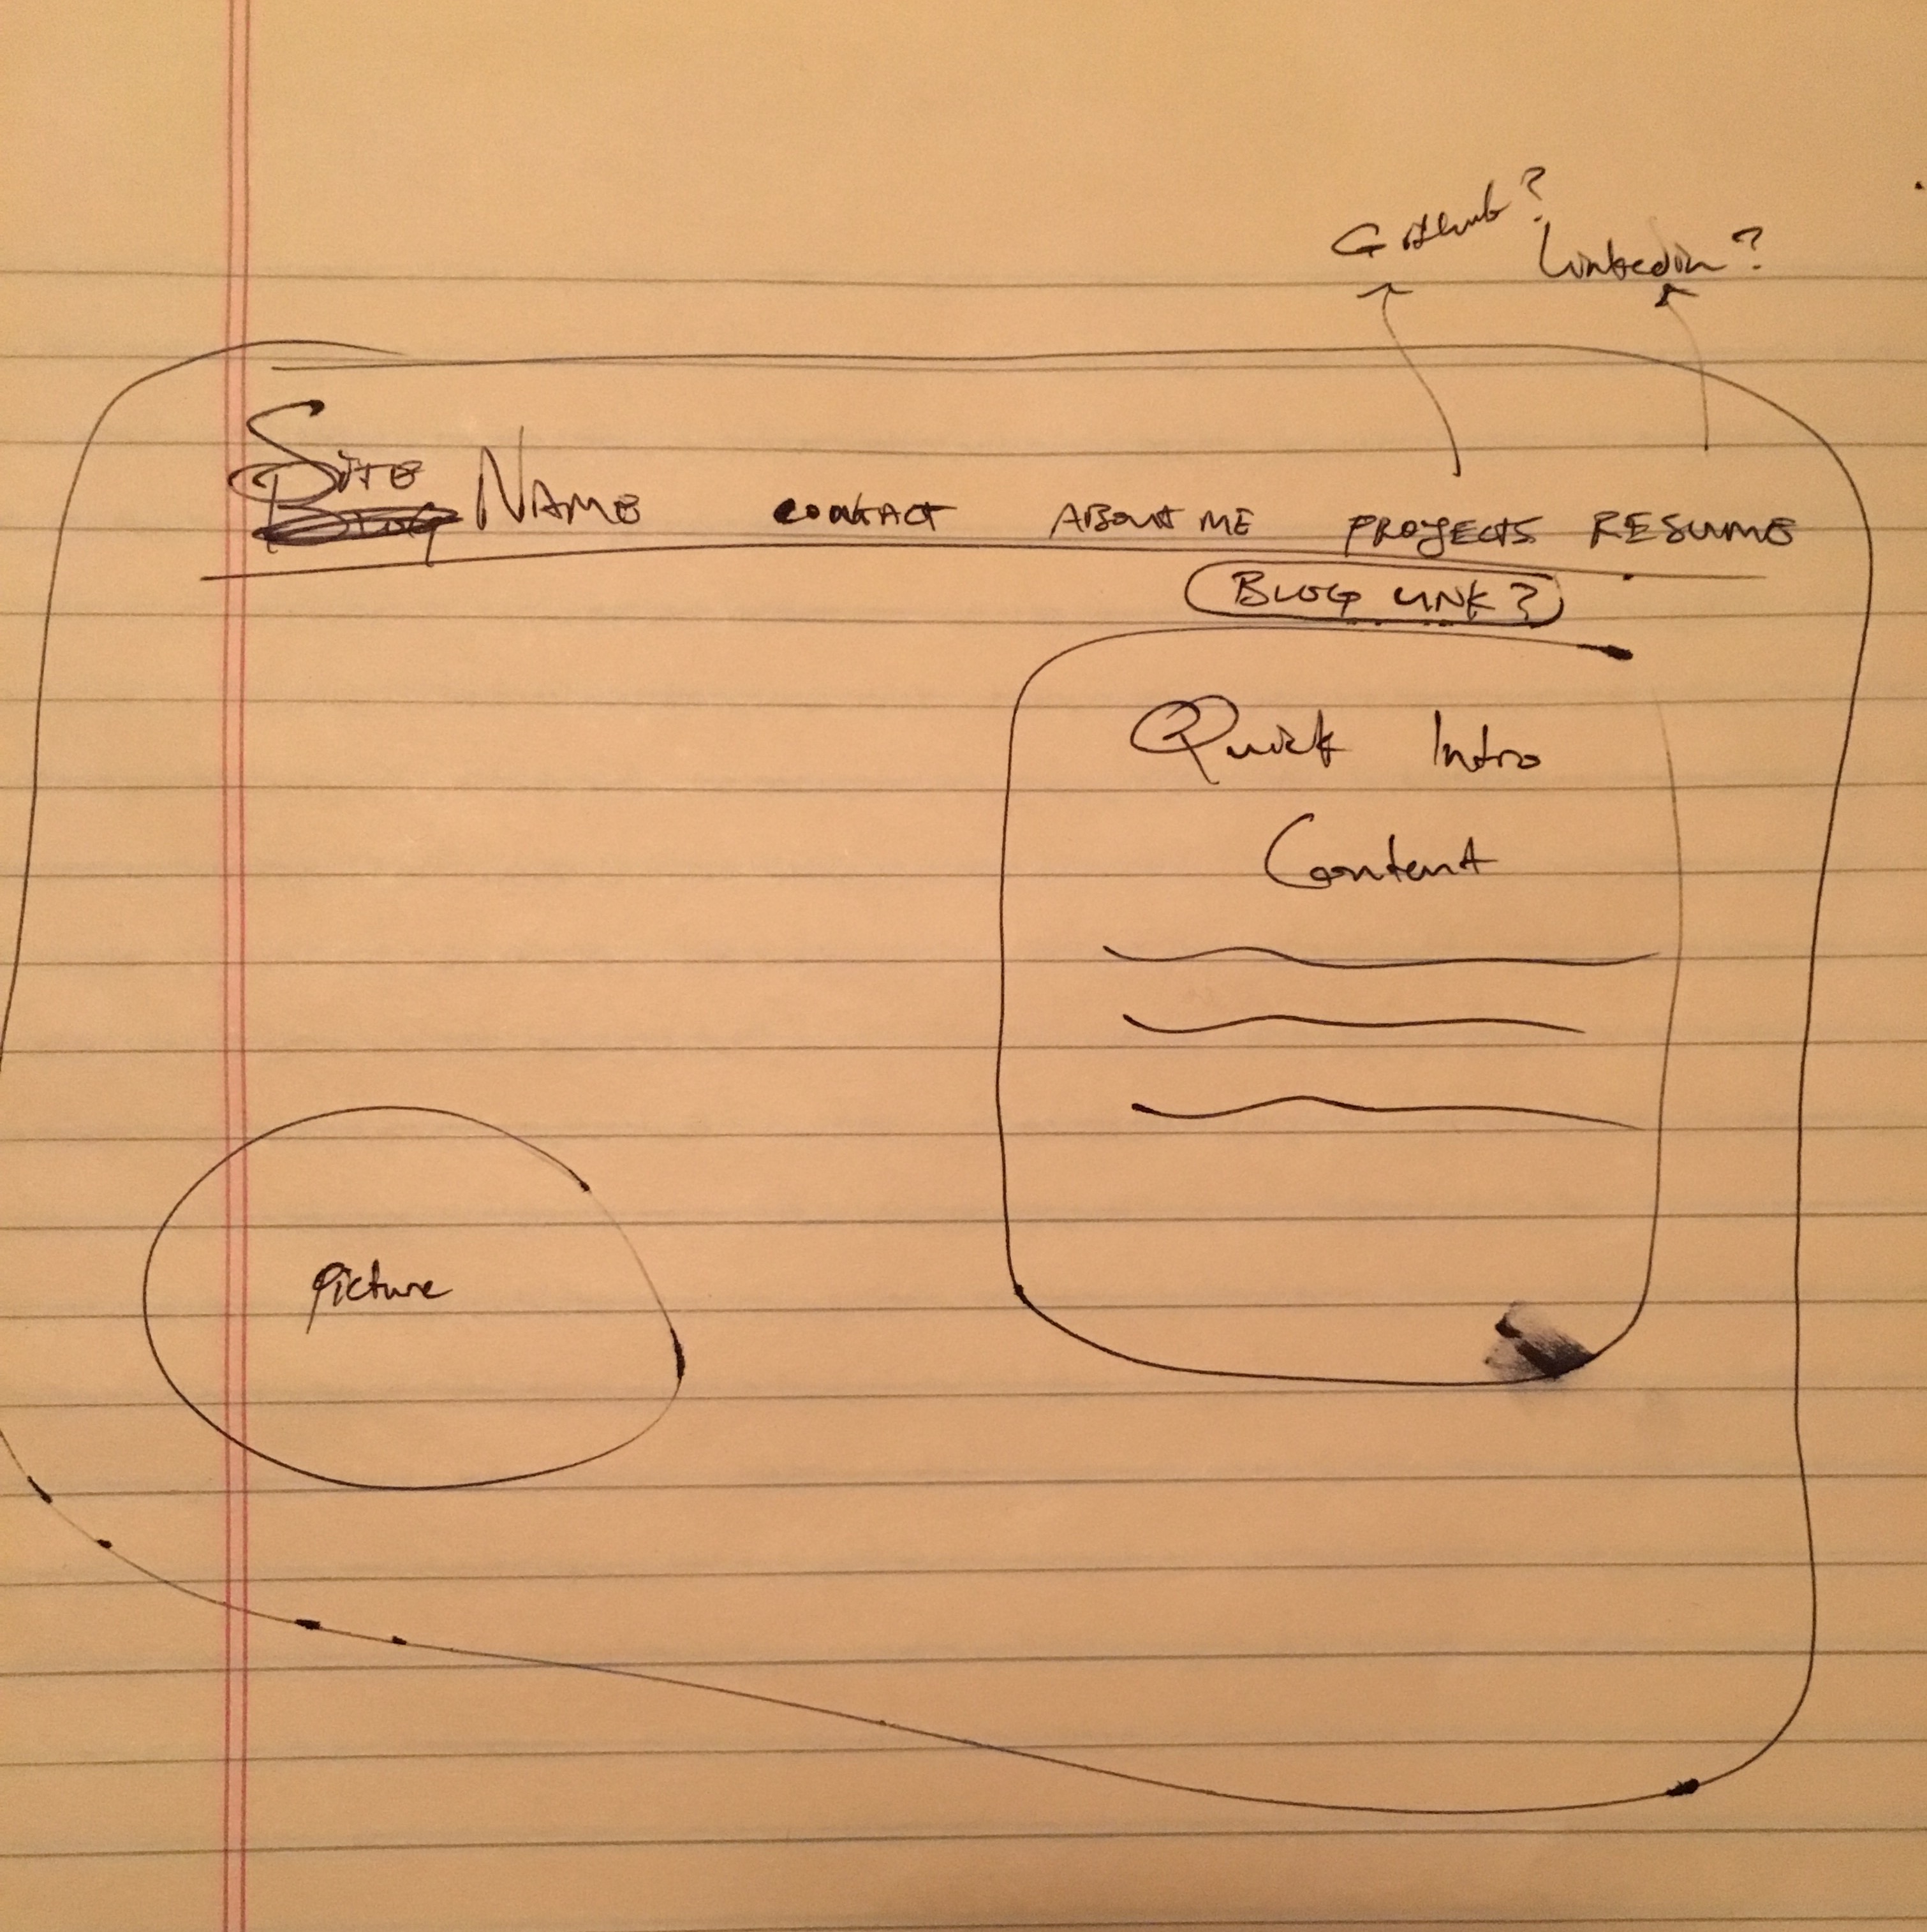 Github?
Linkedin?
SITE NAME CONTACT ABOUT ME PROJECTS RESUME
BLOG
BLOG LINK?
Quick Intro
Content
Picture